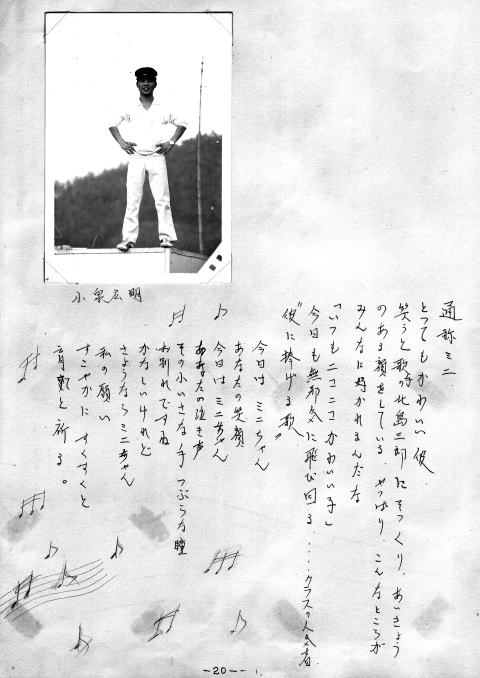 小泉広明
通称ミニ
とってもかわいい彼.
笑うと歌手の北島三郎にそっくり.あいきょう
のある顔をしている.やっぱり.こんなところが
みんなに好かれるんだな
「いつもニコニコかわいい子」
今日も無邪気に飛び回る.....クラスの人気者.
"彼に捧げる歌"
今日は ミニちゃん
あなたの笑顔
今日は ミニちゃん
あなたの泣き声
その小いさな手 つぶらな瞳
お別れですね
かなしいけれど
さようならミニちゃん
私の願い
すこやかに すくすくと
育てと祈る。
-20-